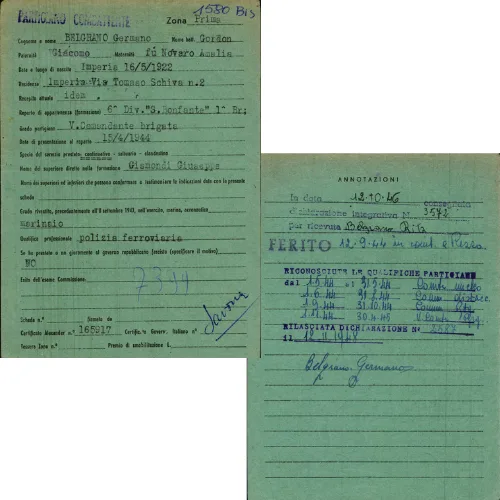 1580 Bis
PARTIGIANO COMBATTENTE
Zona Prima
Cognome e nome BELGRANO Germano Nome batt. Gordon
Paternità Giacomo Maternità fu Novaro Amalia
Data e luogo di nascita Imperia 16/5/1922
Residenza Imperia Via Tomaso Schiva n.2
Recapito attuale idem
Reparto di appartenenza (formazione) 6° Div."S.Bonfante" 1° Br;
Grado partigiano V.Commandante brigata
Data di presentazione al reparto 15/4/1944
Specie del servizio prestato: continuativo - saltuario - clandestino
Nome del superiore diretto nella formazione Gismondi Giuseppe
Nomi dei superiori ed inferiori che possono confermare la
indicazioni date con la presente
scheda
Grado rivestito, precedentemente all'8 settembre 1943, nell'esercito, marina, aeronautica
marinaio
Qualifica professionale polizia ferroviaria
Se ha prestato o no giuramento al governo repubblicano (notizie specifiche il motivo)
NO
Esito dell'esame Commissione:
7344
Scheda n.° Decreto da
Certificato Alexander n.° 165917 Certificato Govern. Italiano n.°
Tessera Zona n.° Premio di smobilitazione L.
ANNOTAZIONI
In data 12.10.46 consegnata
dichiarazione integrativa N. 3572
per ricevuta Belgrano Rita
FERITO 12.9.44 in
RICONOSCIUTE LE QUALIFICHE PARTIGIANE
dal 31.5.44
1.6.44 31.8.44
1.9.44 31.10.44
1.11.44 30.4.45
RILASCIATA DICHIARAZIONE N°
il 12
1948
Belgrano Germano